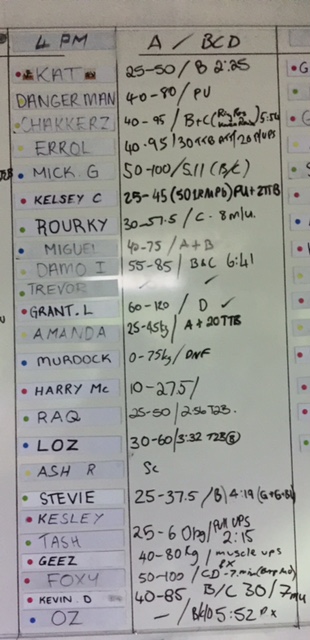 4 PM A / BCD
KAT 25-50 / B 2:25
DANGERMAN 40-80 / PU
CHAKKERZ 40-95 / B+C 5:54
ERROL 40-95 / 30 TTB
MICK. G 50-100 / 5.11 (B/C)
KELSEY C 25-45 PU + 2TTB
ROURKY 30-57.5 / C. 8 m/u.
MIGUEL 40-75 / A+B
DAMO I 55-85 / B&C 6:41
TREVOR
GRANT. L 60-120 / D ✓
AMANDA 25-45kg / A + 20 TTB
MURDOCK 0-75kg / DNF
HARRY Mc 10-27.5 /
RAQ 25-50 / 2:56 T2B.
LOZ 30-60 / 3:32 T2B B
ASH R Sc
STEVIE 25-37.5 / B 4:19
KESLEY
TASH 25-60kg / Pull UPS 2:15
GEEZ 40-80kg / muscle ups RX
FOXY 50-100 / CD - 7 min
KEVIN. D 40-85 B/C 30 / 7mu
OZ — / B 5:52 Rx